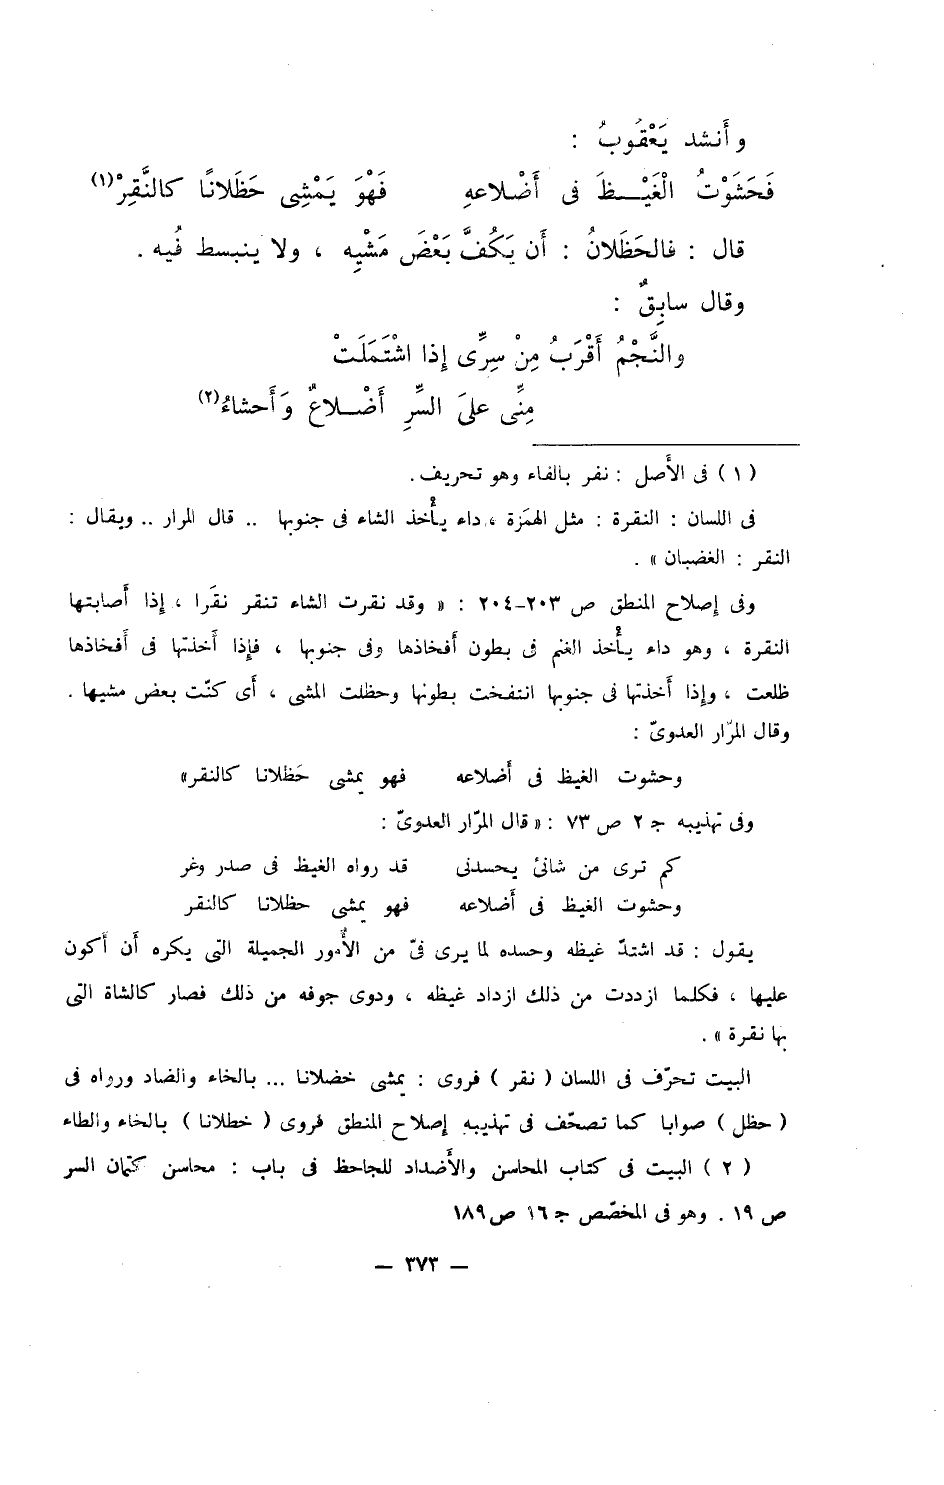 وأَنشد يَعْقُوبُ :
فَحَشَوْتُ الْغَيْـظَ فى أَضْلاعهِ فَهْوَ يَمْشِى حَظَلانًا كالنَّقِرْ(١)
قال : فالحَظَلانُ : أَن يَكُفَّ بَعْضَ مَشْيِه ، ولا ينبسط فُيه .
وقال سابِقٌ :
والنَّجْمُ أَقْرَبُ مِنْ سِرِّى إِذا اشْتَمَلَتْ
مِنِّى علىَ السرِّ أَضْـلاعٌ وَأَحشاءُ(٢)
(١) فى الأَصل : نفر بالفاء وهو تحريف.
فى اللسان : النقرة : مثل الهمَزة ، داء يأْخذ الشاء فى جنوبها .. قال المرار .. ويقال :
النقر : الغضبان » .
وفى إصلاح المنطق ص ٢٠٣-٢٠٤ : « وقد نقرت الشاء تنقر نقَرا ، إذا أصابتها
النقرة ، وهو داء يأْخذ الغنم فى بطون أَفخاذها وفى جنوبها ، فإذا أَخذتها فى أَفخاذها
ظلعت ، وإذا أَخذتها فى جنوبها انتفخت بطونها وحظلت المشى ، أى كفّت بعض مشيها .
وقال المرّار العدوىّ :
وحشوت الغيظ فى أَضلاعه فهو يمشى حَظلانا كالنقر»
وفى تهذيبه جـ ٢ ص ٧٣ : « قال المرّار العدوىّ :
كم ترى من شانئ يحسدنى قد رواه الغيظ فى صدر وغر
وحشوت الغيظ فى أَضلاعه فهو يمشى حظلانا كالنقر
يقول : قد اشتدّ غيظه وحسده لما يرى فىّ من الأُمور الجميلة التى يكره أن أكون
عليها ، فكلما ازددت من ذلك ازداد غيظه ، ودوى جوفه من ذلك فصار كالشاة التى
بها نقرة » .
البيت تحرّف فى اللسان ( نقر ) فروى : يمشى خضلانا ... بالخاء والضاد ورواه فى
( حظل ) صوابا كما تصحّف فى تهذيبه إصلاح المنطق فروى ( خطلانا ) بالخاء والطاء
(٢) البيت فى كتاب المحاسن والأَضداد للجاحظ فى باب : محاسن كتمان السر
ص ١٩ . وهو فى المخصّص جـ ١٦ ص ١٨٩
— ٣٧٣ —